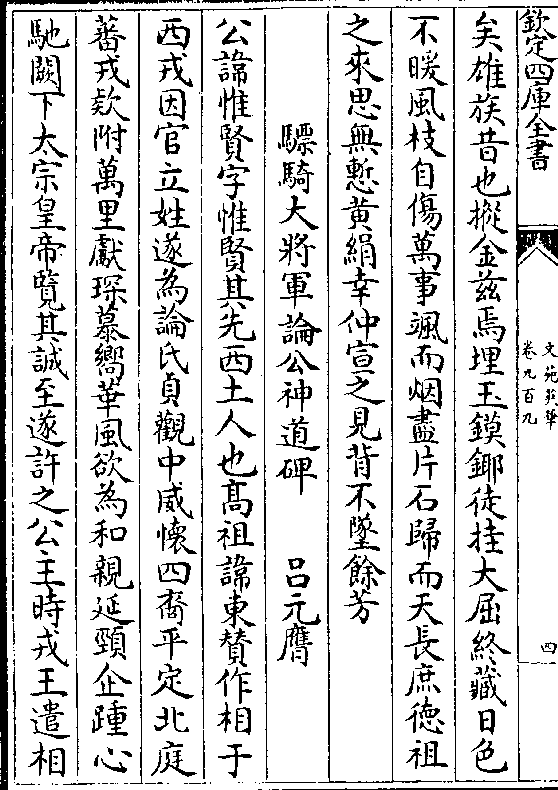 欽定四庫全書
文苑英華
卷九百九
四
矣雄族昔也摐金兹焉埋玉鏌鎁徒挂大屈終藏日色
不暖風枝自傷萬事颯而烟盡片石歸而天長庶徳祖
之來思無慙黄絹幸仲宣之見背不墜餘芳
驃騎大將軍論公神道碑　吕元膺
公諱惟賢字惟賢其先西土人也髙祖諱東賛作相于
西戎因官立姓遂為論氏貞觀中威懷四裔平定北庭
蕃戎欵附萬里獻琛慕嚮華風欲為和親延頸企踵心
馳闕下太宗皇帝覽其誠至遂許之公主時戎王遣相